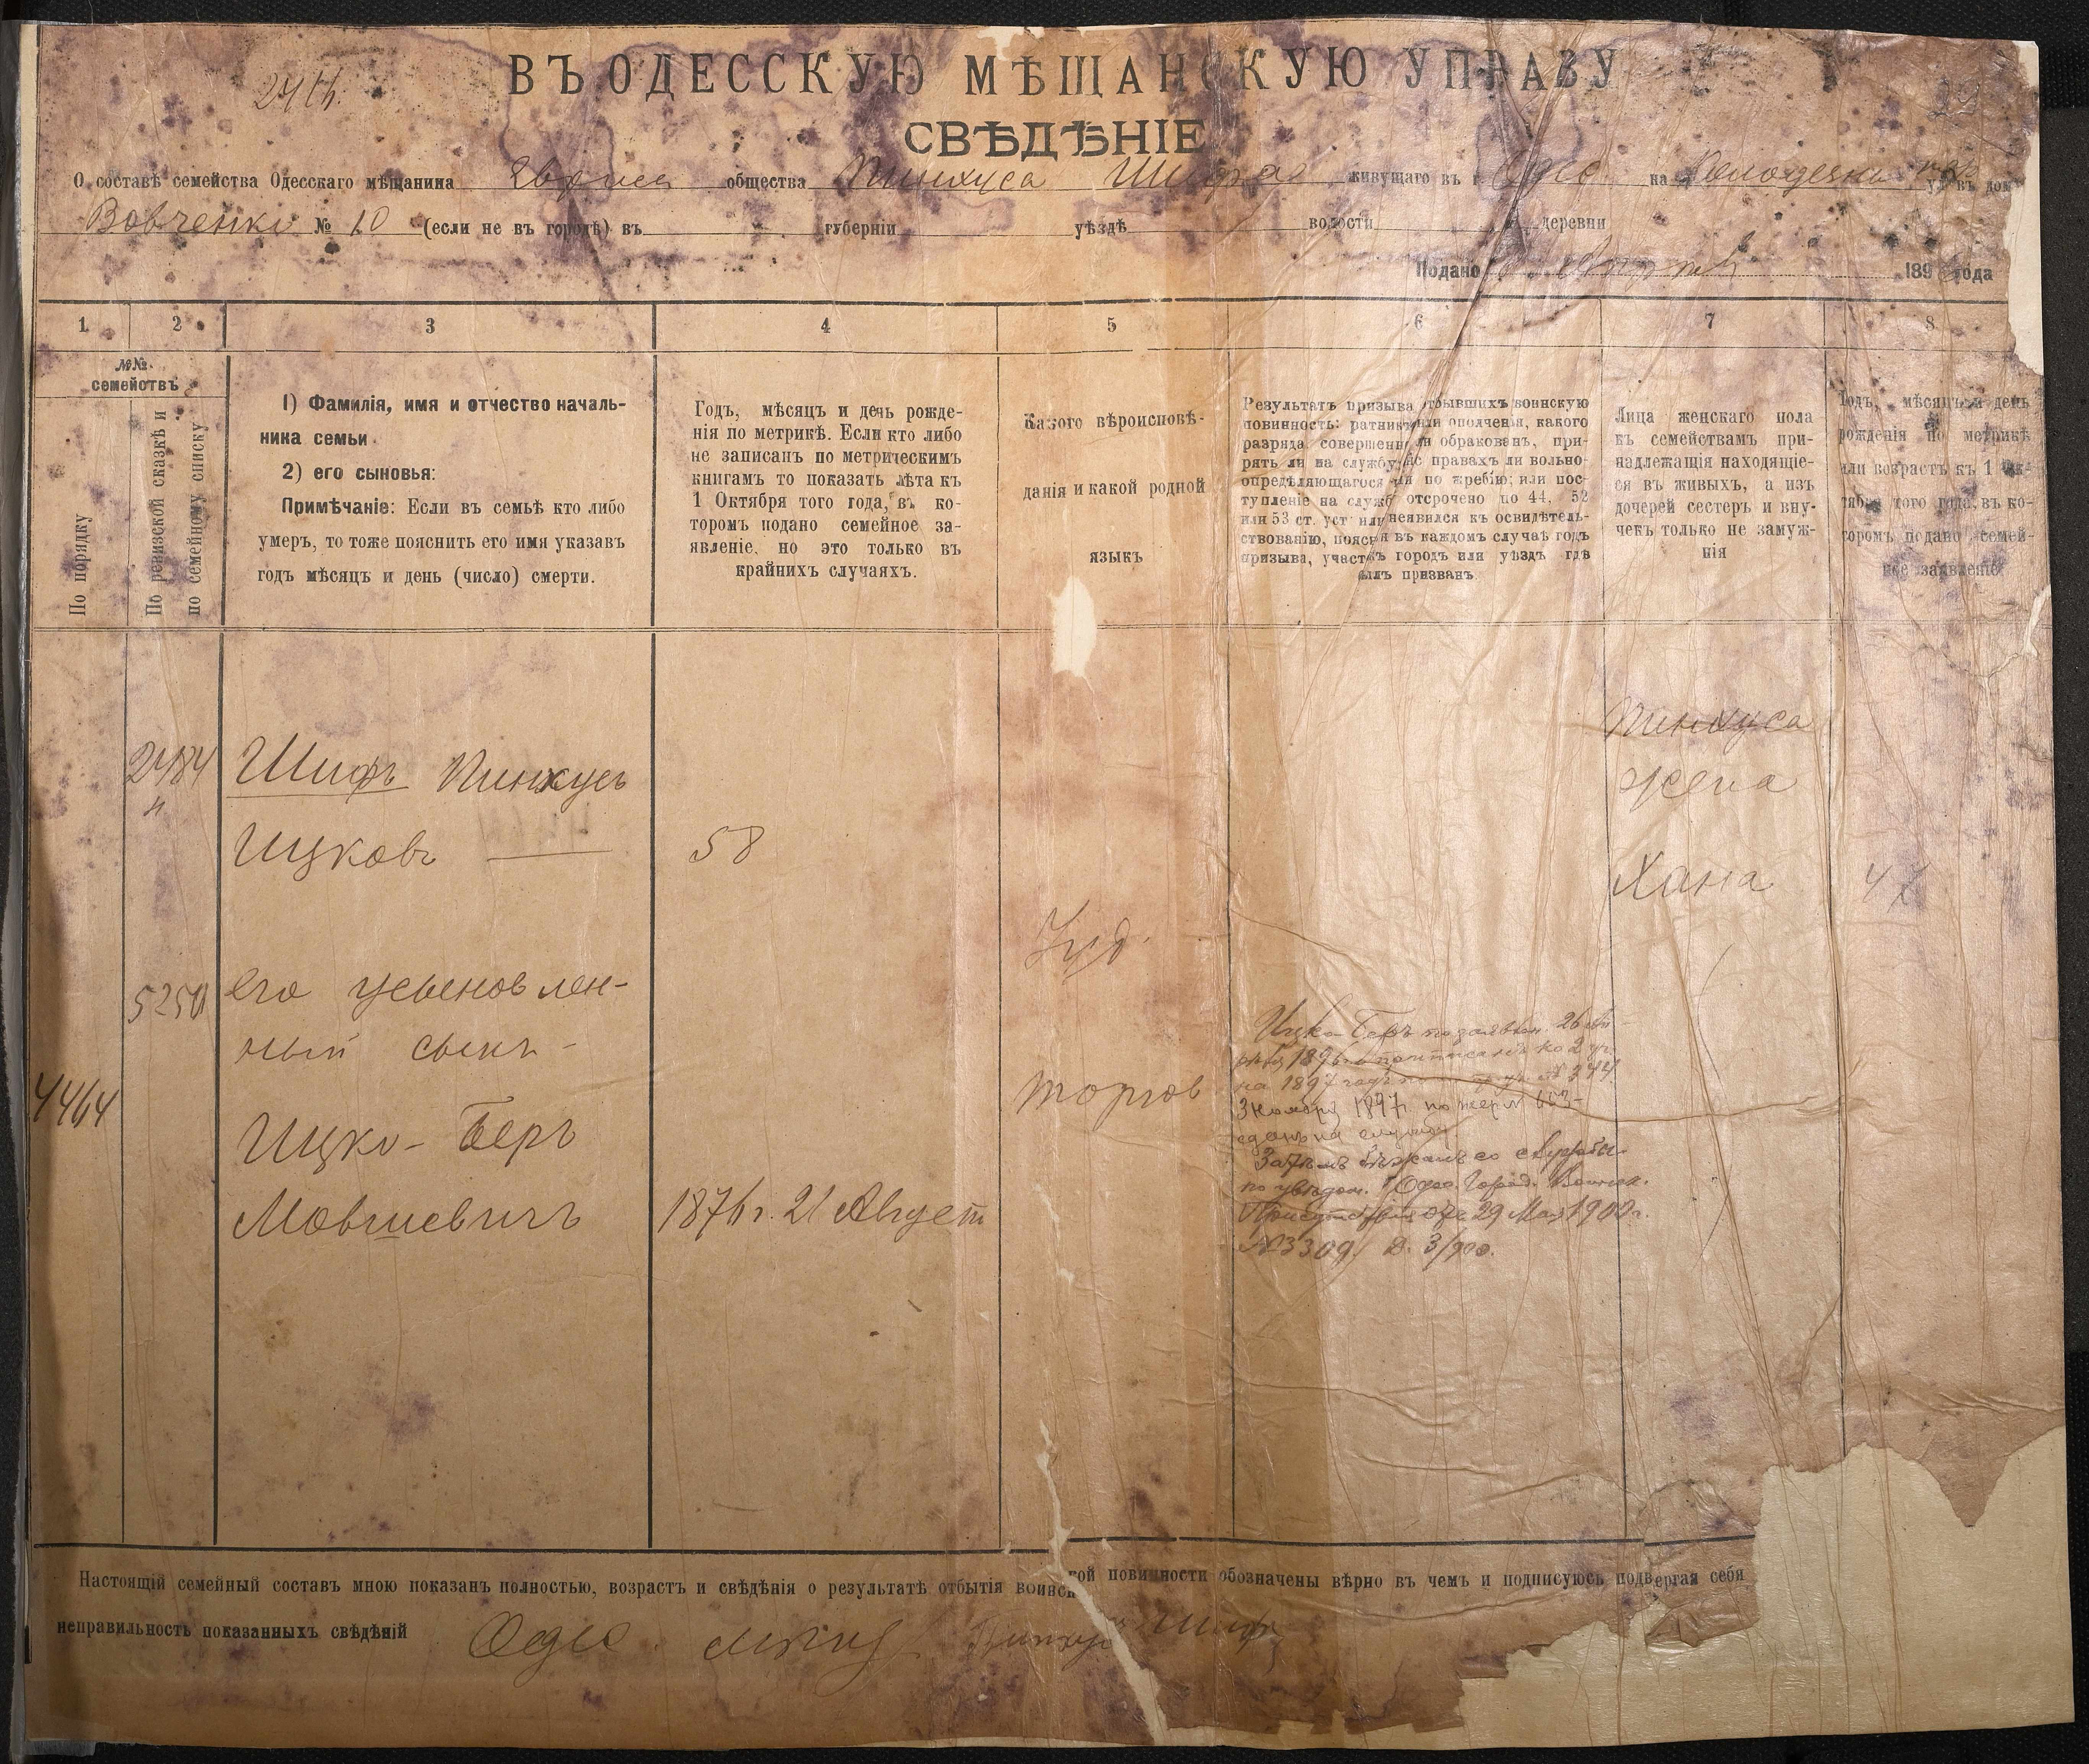 ВЪ ОДЕССКУЮ МѢЩАНСКУЮ УПРАВУ
СВѢДѢНІЕ
О составѣ семейства Одесскаго мѣщанина общества Пинхуса Шифа живущаго въ г. Одес. на въ домѣ
Вовченко № 10 (если не въ городѣ) въ губерніи уѣздѣ волости деревни
Подано 189 года
1 2 3 4 5 6 7 8
№№
семействъ
По порядку
По ревизской сказкѣ и
по семейному списку
1) Фамилія, имя и отчество началь-
ника семьи
2) его сыновья:
Примѣчаніе: Если въ семьѣ кто либо
умеръ, то тоже пояснить его имя указавъ
годъ мѣсяцъ и день (число) смерти.
Годъ, мѣсяцъ и день рожде-
нія по метрикѣ. Если кто либо
не записанъ по метрическимъ
книгамъ то показать лѣта къ
1 Октября того года, въ ко-
торомъ подано семейное за-
явленіе, но это только въ
крайнихъ случаяхъ.
Какого вѣроисповѣ-
данія и какой родной
языкъ
Результатъ призыва отбывшихъ воинскую
повинность: ратникъ ли ополченія, какого
разряда совершенно ли обракованъ, при-
нятъ ли на службу; въ правахъ ли вольно-
опредѣляющагося или по жребію; или пос-
тупленіе на службу отсрочено по 44, 52
или 53 ст. уст. или неявился къ освидѣтель-
ствованію, поясняя въ каждомъ случаѣ годъ
призыва, участокъ городъ или уѣздъ гдѣ
былъ призванъ
Лица женскаго пола
къ семействамъ при-
надлежащія находящіе-
ся въ живыхъ, а изъ
дочерей сестеръ и вну-
чекъ только не замуж-
нія
Годъ, мѣсяцъ и день
рожденія по метрикѣ
или возрастъ къ 1 Ок-
тября того года, въ ко-
торомъ подано семей-
ное заявленіе
2484 Шифъ Пинхусъ
Ицковъ 58
Пинхуса
жена
Хана 47
Іуд.
5250 его усыновлен-
ный сынъ -
4464
Ицко-Беръ
Мовшевичъ 1876 г. 21 Август
торгов
Ицко-Беръ по заявлен. 26 Ап-
рѣля 1896 г. приписанъ ко 2 уч.
на 1897 годъ № 344
3 ноября 1897 по жереб. 663
сданъ на службу.
Затѣмъ бѣжалъ со службы
по увѣдом. Одес. Город. Воинск.
Присутствія отъ 29 Мая 1900 г.
№ 3309 Д. 3/900.
Настоящій семейный составъ мною показанъ полностью, возрастъ и свѣдѣнія о результатѣ отбытія воинской повинности обозначены вѣрно въ чемъ и подписуюсь подвергая себя
неправильность показанныхъ свѣдѣній Одес. мѣщ. Пинхусъ Шифъ